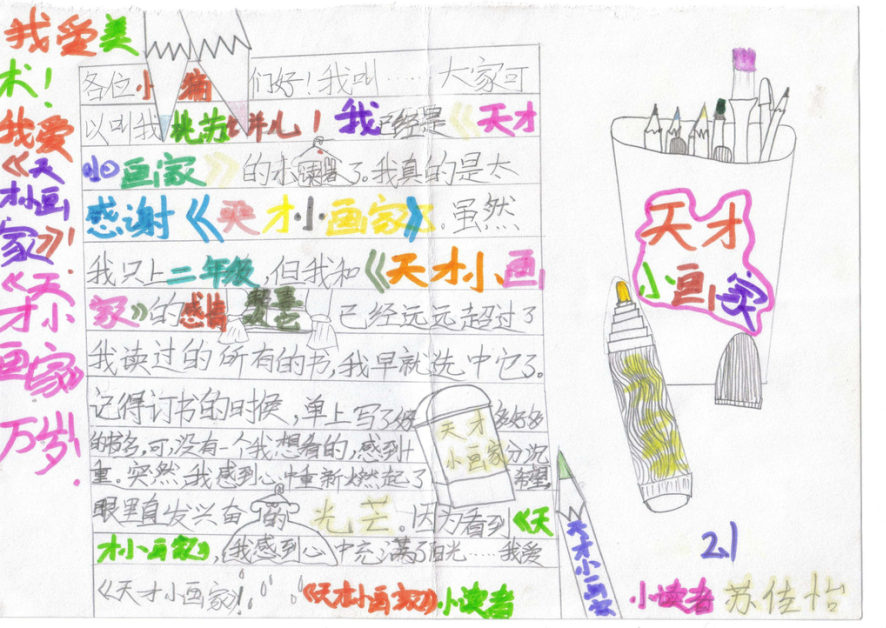 我爱美
术！
我爱
《天
才小画
家》！
《天
才小
画家》
万岁！
各位小 们好！我叫……大家可
以叫我 ！我已经是《天才
小画家》的 了。我真的是太
感谢《天才小画家》了。虽然
我只上二年级，但我和《天才小画
家》的感情 已经远远超过了
我读过的所有的书，我早就选中它了。
记得订书的时候，单上写了好多好多
的书名，可，没有一个我想看的，感到十分沉
重。突然，我感到心中重新燃起了希望，
眼里直发兴奋的光芒。因为看到《天
才小画家》，我感到心中充满了阳光……我爱
《天才小画家》！
《天才小画家》小读者
天才
小画家
天才
小画家
天才小画家
2.1
小读者 苏佳怡